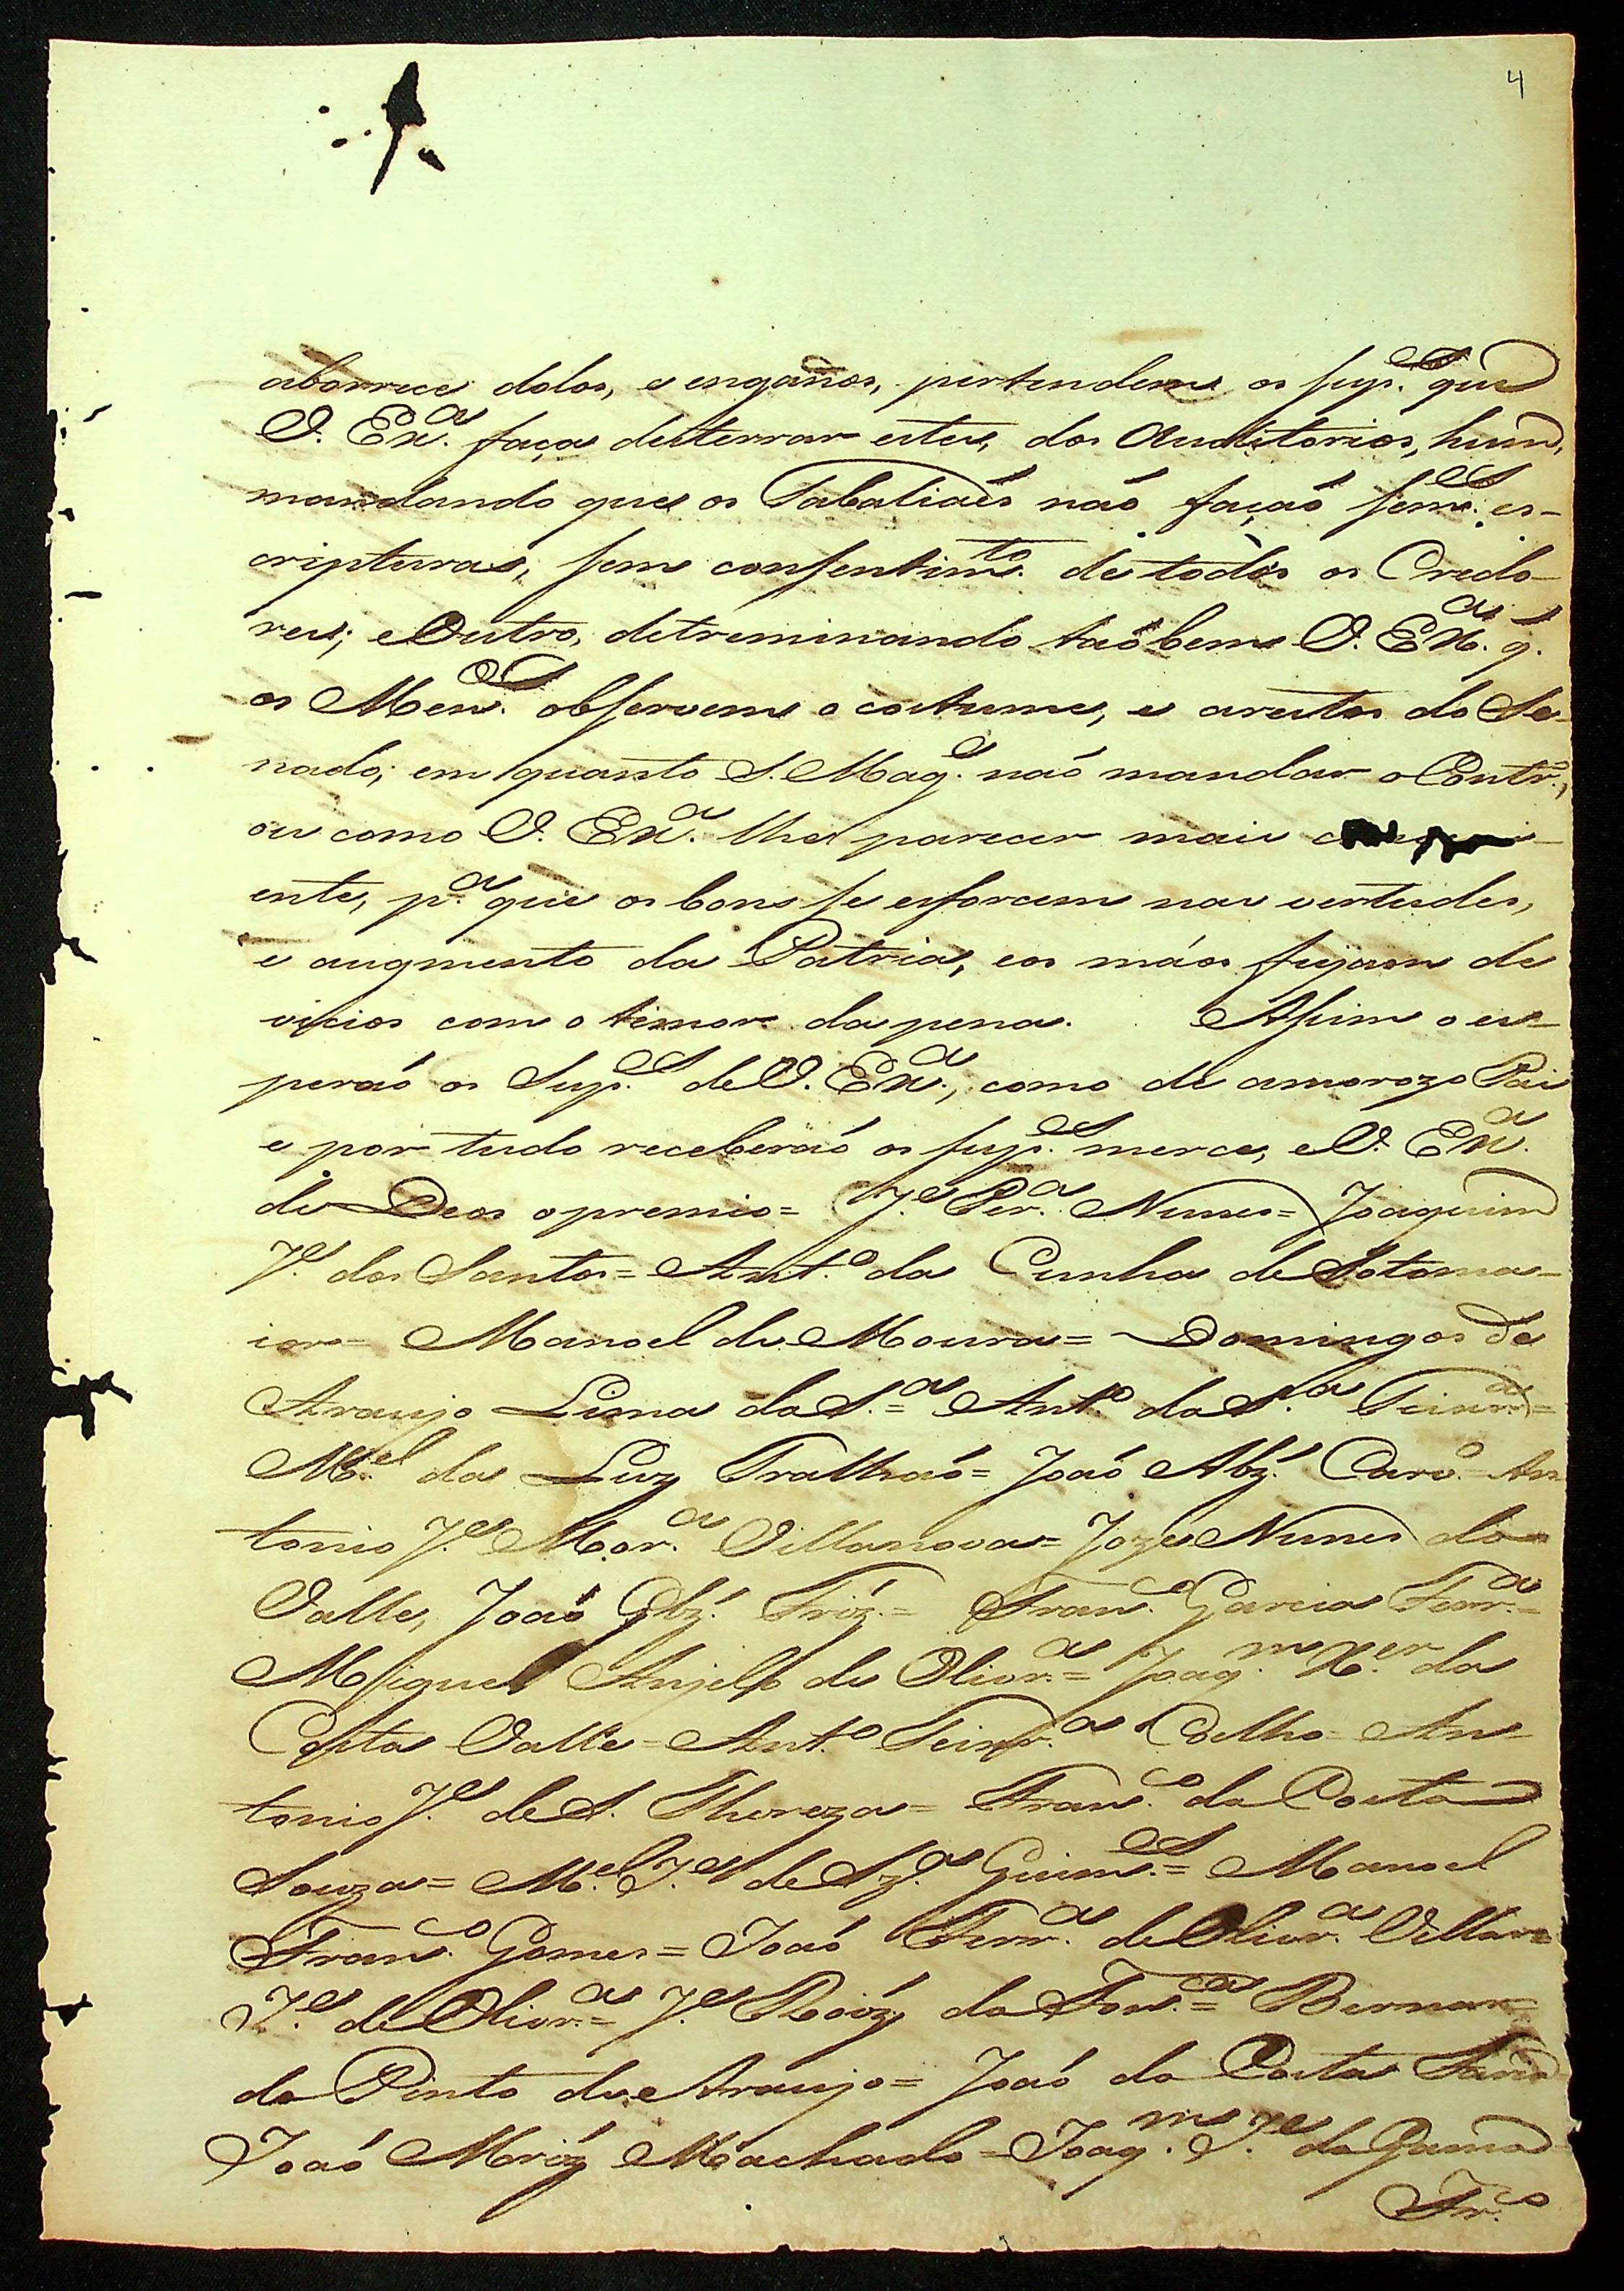 4
aborrece dolos, e enganos, pertendem os sup.es que
V. Ex.a faça desterrar estes, dos Auditorios, hum,
mandando que os Tabaliaẽs naõ façaõ sem.es es-
cripturas, sem consentim.to de todos os Credo-
res; e Outro, detreminando taõbem V. Ex.a q.
os Men.es observem o costume, e arestos do Se-
nado, em quanto S. Mag.e naõ mandar o Contr.o,
ou como V. Ex.a lhe parecer mais
ente, p.a que os bons se esforcem nas vertudes,
e augmento da Patria, e os máos fujam de
vicios com o timor da pena. Assim o es-
peraõ os Sup.es de V. Ex.a, como de amorozo Pai
e por tudo receberaõ os sup.es merce, e V. Ex.a
de Deos o premio= J.e Per.a Nunes= Joaquim
J.e dos Santos= Ant.o da Cunha de Sotoma-
ior= Manoel de Moura= Domingos de
Araujo Lima da S.a= Ant.o da S.a Teixr.a=
M.el da Luz Tralhaõ= Joaõ Alz.' Carv.o= An
tonio J.e Mor.a Villanova= Joze Nunes do
Valle, Joaõ Glz.' Friz.= Fran.co Garcia Ferr.a=
Miguel Anjelo de Olivr.a= Joaq.m X.er da
Costa Valle= Ant.o Teixr.a Coelho= An-
tonio J.e de S. Thereza= Fran.co da Costa
Souza= M.el J.e de Sz.a Guim.es= Manoel
Fran.co Gomes= Joaõ Ferr.a de Olivr.a Villar=
J.e de Olivr.a= J.e Roiz da Fon.ca= Bernar-
do Pinto de Araujo= Joaõ da Costa
Joaõ Mriz Machado= Joaq.m J.e da Gama=
Fr.co